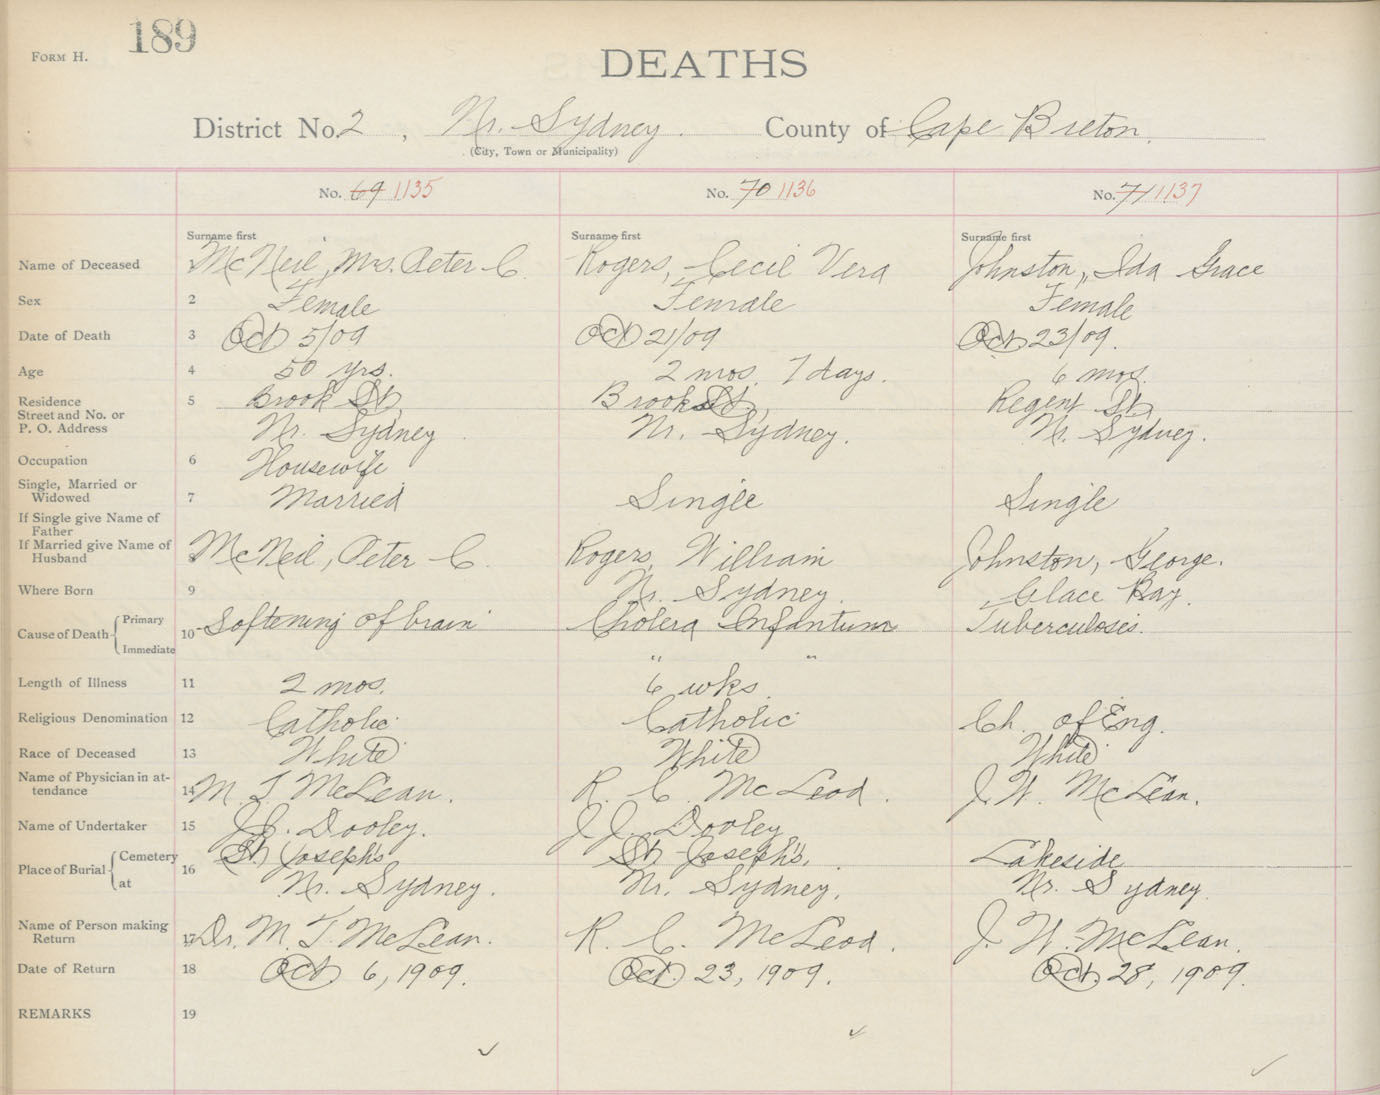 189
FORM H.
DEATHS
District No. 2, Nr. Sydney. County of Cape Breton.
(City, Town or Municipality)
No. 69 1135 No. 70 1136 No. 71 1137
Surname first Surname first Surname first
Name of Deceased 1 McNeil, Mrs. Peter C. Rogers, Cecil Vera Johnston, Ida Grace
Sex 2 Female Female Female
Date of Death 3 Oct 5/09 Oct 21/09 Oct. 23/09.
Age 4 50 yrs. 2 mos. 7 days. 6 mos.
Residence 5 Brook St, Brook St, Regent St,
Street and No. or
P. O. Address Nr. Sydney Nr. Sydney. Nr. Sydney.
Occupation 6 Housewife
Single, Married or
Widowed 7 Married Single Single
If Single give Name of
Father
If Married give Name of
Husband 8 McNeil, Peter C. Rogers, William Johnston, George.
Where Born 9 Nr. Sydney. Glace Bay.
Cause of Death Primary 10 Softening of brain Cholera Infantum Tuberculosis.
Immediate " "
Length of Illness 11 2 mos. 6 wks.
Religious Denomination 12 Catholic Catholic Ch. of Eng.
Race of Deceased 13 White White White
Name of Physician in at-
tendance 14 M. T. McLean. R. C. McLeod. J. W. McLean.
Name of Undertaker 15 J.J. Dooley. J.J. Dooley
Place of Burial Cemetery 16 St. Joseph's St. Joseph's, Lakeside
at Nr. Sydney. Nr. Sydney, Nr. Sydney.
Name of Person making
Return 17 Dr. M. T. McLean. R. C. McLeod. J. W. McLean.
Date of Return 18 Oct. 6, 1909. Oct. 23, 1909. Oct. 28, 1909.
REMARKS 19